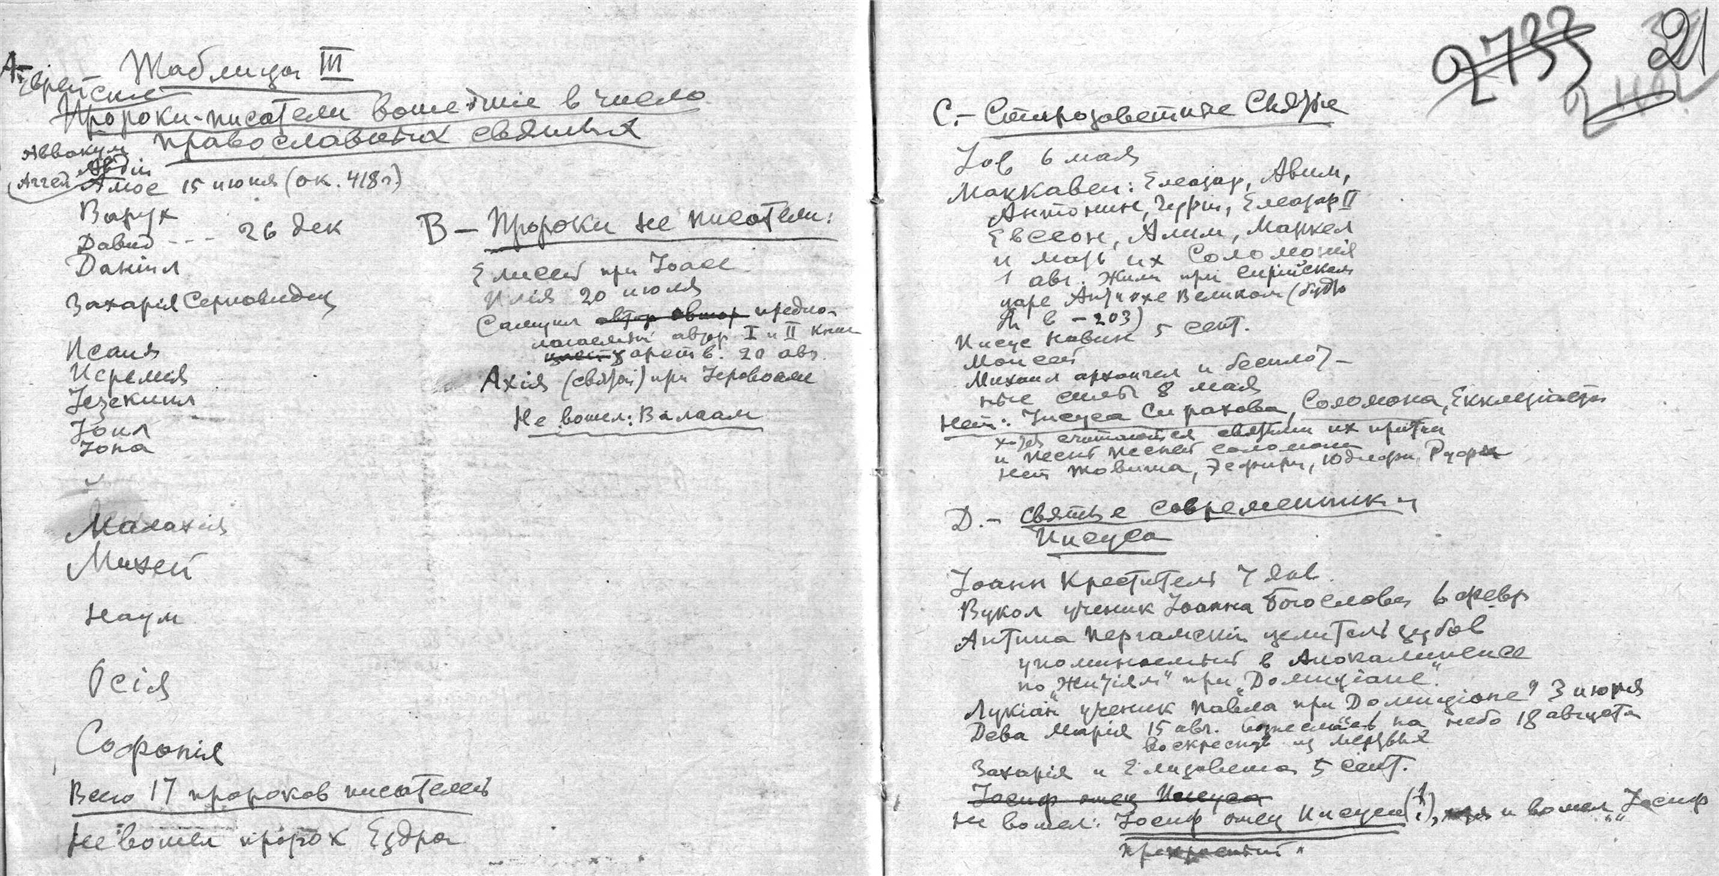 Таблица III
А.- Еврейские
Пророки-писатели вошедшіе в число
православных святых
Аввакум
Авдій
(Аггей Амос 15 июня (ок. 418 г)
Варух
Давид --- 26 дек
Даніил
Захарія Серповидец
Исаия
Иеремия
Іезекиил
Іоил
Іона
Малахія
Михей
Наум
Осія
Софонія
Всего 17 пророков писателей
Не вошел пророк Ездра
В – Пророки не писатели:
Елисей при Іоасе
Илія 20 июля
Самуил автор автор предпо-
лагаемый автор I и II книг
царств. 20 авг.
Ахія (святой) при Іеровоаме
Не вошел: Валаам
2733 21
С.- Старозаветные Святые
Іов 6 мая
Маккавеи: Елеазар, Авим,
Антонин, Гурій, Елеазар II
Евсеон, Алим, Маркел
и мать их Соломонія
1 авг. Жили при сирийском
царе Антиохе Великом (
в – 203)
Иисус Навин 5 сент.
Моисей
Михаил архангел и бесплот-
ные силы 8 мая
Нет: Іисуса Сирахова, Соломона, Екклезіаста
хотя считаются святыми их притчи
и песнь песней соломона
нет Товита, Эсфири, Юдифи, Руфи
D.- святые современники
Иисуса
Іоанн Креститель 7 янв.
Вукол ученик Іоанна Богослова 6 февр
Антипа пергамскій целитель зубов
упоминаемый в Апокалипсисе
по "Житіям" при Домиціане.
Лукіан "ученик Павла" при Домиціане? 3 июня
Дева Марія 15 авг. вознеслась на небо 18 августа
воскреснув из мертвых
Захарія и Елизавета 5 сент.
Іосиф отец Иисуса
Не вошел: Іосиф отец Иисуса (!), и вошел Іосиф